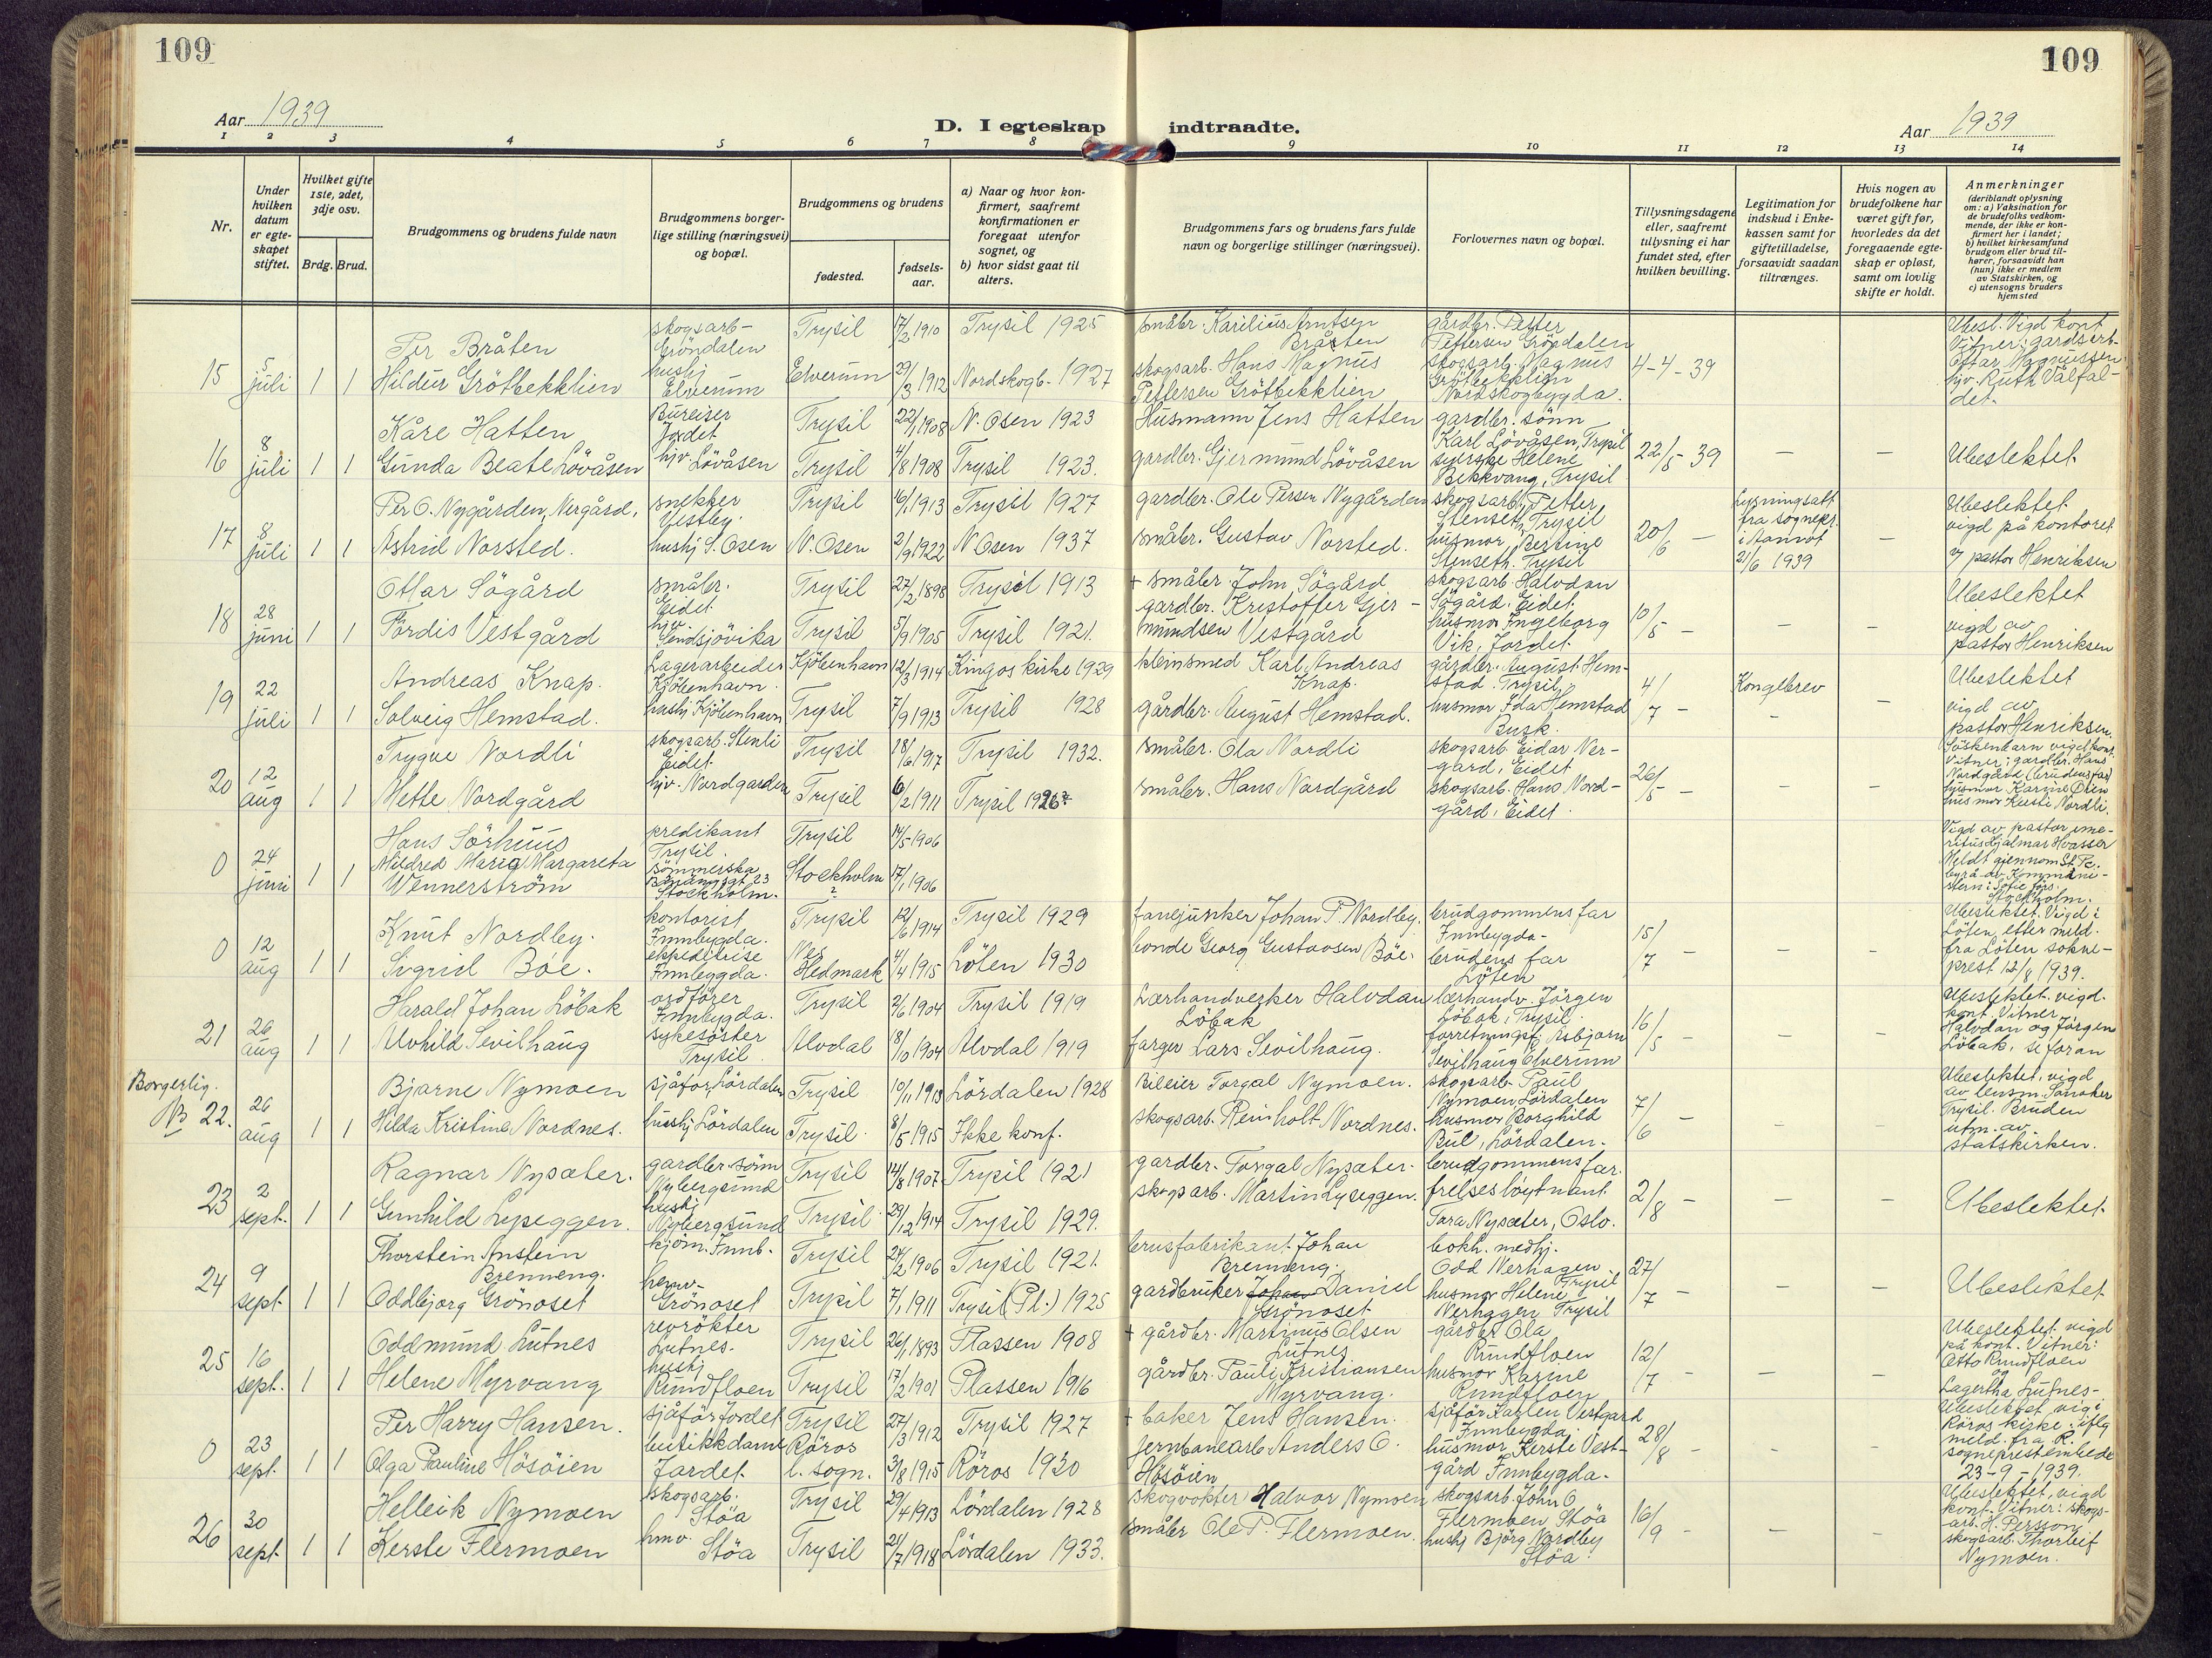 109
109
Aar 1939
D. I egteskap indtraadte.
Aar 1939
1 2 3 4 5 6 7 8 9 10 11 12 13 14
Nr.
Under hvilken datum er egteskapet stiftet.
Hvilket gifte 1ste, 2det, 3dje osv.
Brdg. Brud.
Brudgommens og brudens fulde navn
Brudgommens borgerlige stilling (næringsvei) og bopæl.
Brudgommens og brudens
fødested.
fødselsaar.
a) Naar og hvor konfirmert, saafremt konfirmationen er foregaat utenfor sognet, og
b) hvor sidst gaat til alters.
Brudgommens fars og brudens fars fulde navn og borgerlige stillinger (næringsvei).
Forlovernes navn og bopæl.
Tillysningsdagene eller, saafremt tillysning ei har fundet sted, efter hvilken bevilling.
Legitimation for indskud i Enkekassen samt for giftetilladelse, forsaavidt saadan tiltrænges.
Hvis nogen av brudefolkene har været gift før, hvorledes da det foregaaende egteskap er opløst, samt om lovlig skifte er holdt.
Anmerkninger (deriblandt oplysning om: a) Vaksination for de brudefolks vedkommende, der ikke er konfirmert her i landet; b) hvilket kirkesamfund brudgom eller brud tilhører, forsaavidt han (hun) ikke er medlem av Statskirken, og c) utensogns bruders hjemsted
Per Bråten skogsarb- Gröndalen Trysil 17/2 1910 Trysil 1925 småbr. Karilius Arntsen Bråten gårdbr. Petter Pettersen Gröndalen
15 5 juli 1 1 Hildur Grötbekklien hushj Elverum Elverum 29/3 1912 Nordskogb. 1927 skogsarb. Hans Magnus Pettersen Grötbekklien skogsarb. Magnus Grötbekklien Nordskogbygda. 4-4-39
Ubesl. Vigd kont Vitner: gardsarb. Ottar Magnussen hjv. Ruth
Kåre Hatten Bureiser Jordet Trysil 22/1 1908 N. Osen 1923 Husmann Jens Hatten gardbr. sönn Karl Lövåsen, Trysil
16 8 juli 1 1 Gunda Beate Lövåsen hjv. Lövåsen Trysil 4/8 1908 Trysil 1923. gardbr. Gjermund Lövåsen syerske Helene Bekkvang, Trysil 22/5 39 - - Ubeslektet
Per O. Nygården, Nergård, snekker Vestby. Trysil 16/1 1913 Trysil 1927 gardbr. Ole Persen Nygården skogsarb. Petter Stenseth, Trysil
17 8 juli 1 1 Astrid Norsted. hushj S. Osen N. Osen 2/9 1922 N. Osen 1937 småbr. Gustav Norsted. husmor Bertine Stenseth. Trysil 20/6 - Lysningsatt fra sognepr. i Aamot 21/6 1939 - Ubeslektet vigd på kontoret v/ pastor Henriksen
Ottar Sögård småbr. Eidet Trysil 27/2 1898 Trysil 1913 + småbr. John Sögård skogsarb. Halvdan Sögård. Eidet.
18 28 juni 1 1 Tordis Vestgård hjv. Sendsjövika Trysil 5/9 1905 Trysil 1921. gardbr. Kristoffer Gjermundsen Vestgård husmor Ingeborg Vik, Jordet. 10/5 - - - Ubeslektet vigd av pastor Henriksen
Andreas Knap. Lagerarbeider Kjöbenhavn. Kjöbenhavn 12/3 1914 Kingos kirke 1929 kleinsmed Karl Andreas Knap. gårdbr. August Hemstad. Trysil.
19 22 juli 1 1 Solveig Hemstad. hushj Kjöbenhavn Trysil 7/9 1913 Trysil 1928 gårdbr. August Hemstad. husmor Ida Hemstad Busk. 4/7 - Kongebrev - - Ubeslektet vigd av pastor Henriksen.
Trygve Nordli skogsarb. Stenli Eidet Trysil 18/6 1917 Trysil 1932. småbr. Ola Nordli skogsarb. Eidar Nergard, Eidet
20 12 aug 1 1 Mette Nordgård hjv. Nordgarden Trysil 6/2 1911 Trysil 1926 småbr. Hans Nordgård skogsarb. Hans Nordgård, Eidet. 26/5 - - - Söskenbarn vigd kont. Vitner: gardbr. Hans Nordgård (brudens far) husmor Karine Olsen husmor Kersti Nordli.
Hans Sörhuus predikant Trysil. Trysil 14/5 1906
0 24 juni 1 1 Mildred Maria Margareta Wennerström Sömmerska Stockholm. Stockholm 17/1 1906 Vigd av pastor emeritus Hjalmar Hvasser Meldt gjennom St. Pe. byrå av Kommini- stern i Sofie förs. Stockholm.
Knut Nordby. kontorist Innbygda. Trysil 12/6 1914 Trysil 1929 fanejunker Johan P. Nordby. brudgommens far Innbygda-
0 12 aug 1 1 Sigrid Böe. ekspeditrise Innbygda. Nes Hedmark 4/4 1915 Löten 1930 bonde Georg Gustavsen Böe. brudens far Löten 15/7 - - - Ubeslektet. Vigd i Löten, efter meld. fra Löten sokneprest 12/8 1939.
Harald Johan Löbak ordförer Innbygda. Trysil 2/6 1904 Trysil 1919 Lærhandverker Halvdan Löbak lærhandv. Jörgen Löbak, Trysil.
21 26 aug 1 1 Alvhild Sevilhaug sykesöster Trysil. Alvdal 18/10 1904 Alvdal 1919 farger Lars Sevilhaug. forretningsf. Asbjörn Sevilhaug Elverum 16/5 - - - Ubeslektet. vigd. kont. Vitner, Halvdan og Jörgen Löbak, se foran
Borgerlig. Bjarne Nymoen sjåför, Lördalen Trysil 10/11 1913 Lördalen 1928 Bileier Torgal Nymoen. skogsarb. Paul Nymoen Lördalen
N 22. 26 aug 1 1 Hilda Kristine Nordnes. hushj Lördalen Trysil. 8/5 1915 Ikke konf. skogsarb. Reinholt Nordnes. husmor Borghild Bul, Lördalen. 7/6 - - - Ubeslektet, vigd av lensm. Sanaker Trysil. Bruden utm. av statskirken.
Ragnar Nysæter. gardbr. sönn Nybergsund Trysil 14/8 1907 Trysil 1921 gardbr. Torgal Nysæter. brudgommens far.
23 2 sept. 1 1 Gunhild Lyseggen. hushj Nybergsund Trysil 29/12 1914 Trysil 1929. skogsarb. Martin Lyseggen. frelseslöytnant Tora Nysæter, Oslo. 2/8 - - - Ubeslektet.
Thorstein Anstein Brenneng. kjöm. Innb. Trysil 24/2 1906 Trysil 1921. brusfabrikant Johan Brenneng. bokh. medhj. Odd Nerhagen Trysil
24 9 sept. 1 1 Oddbjorg Grönoset hemv- Grönoset Trysil 7/1 1911 Trysil (Pl.) 1925 gardbruker Johan Daniel Grönoset husmor Helene Nerhagen Trysil 27/7 - - - Ubeslektet
Oddmund Lutnes revrökter Lutnes. Trysil 26/1 1893 Plassen 1908 + gårdbr. Martinus Olsen Lutnes gårdbr Ola Rundfloen
25 16 sept. 1 1 Helene Myrvang hushj Rundfloen Trysil 17/2 1901 Plassen 1916 gårdbr. Pauli Kristiansen Myrvang. husmor Karine Rundfloen 12/7 - - - Ubeslektet. vigd på kont. Vitner: Otto Rundfloen og Lagertha Lutnes-
Per Harry Hansen. sjåför Jordet Trysil 27/3 1912 Trysil 1927 + baker Jens Hansen. sjåför Karsten Vestgard Innbygda.
0 23 sept. 1 1 Olga Pauline Hösöien butikkdame Jordet. Röros l. sogn. 3/8 1915 Röros 1930 Jernbanearb Anders O. Hösöien husmor Kersti Vestgård Innbygda. 28/8 - - - Ubeslektet, vigd i Röros kirke iflg meld. fra R. sogneprestembede 23-9-1939.
Helleik Nymoen skogsarb. Stöa Trysil 29/4 1913 Lördalen 1928 skogvokter Halvor Nymoen skogsarb. John O. Flermoen Stöa
26 30 sept. 1 1 Kerste Flermoen hmv. Stöa Trysil 21/7 1918 Lördalen 1933. småbr Ole P. Flermoen. hushj Björg Nordby Stöa 16/9 - - - Ubeslektet, vigd kont. Vitner: skogsarb. H. Persson skogsarb. Thorleif Nymoen.